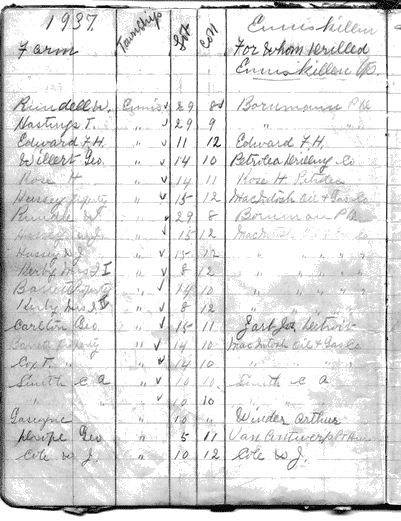 1937. Enniskillen
Farm Township Lot Con For Whom Drilled
Enniskillen Tp.
Rundell W. Ennis 29 8 Bornmann P
Hastings T. " 29 9 " "
Edward F.H. " 11 12 Edward F.H.
Willert Geo. " 14 10 Petrolea Drilling Co
Rose H " 14 11 Rose H Petrolea
Hussey " 15 12 MacIntosh Oil & Gas Co
Rundle W " 29 8 Bornman P
Hussey W.J. " 15 12 MacIntosh
Hussey W.J. " 15 12 " " "
Kerby Mrs I " 8 12 " " "
" 14 10 " " "
Kerby Mrs " 8 12 " " "
Carlton Geo " 15 11 Detroit
" 14 10 MacIntosh Oil & Gas Co
Cox T. " 14 10 " "
Smith C A " 10 10 Smith C A
" " 10 10
Gascoyne " 10 " Winder Arthur
Geo " 5 11 Van Antwerp
Cole W J. " 10 12 Cole W J.